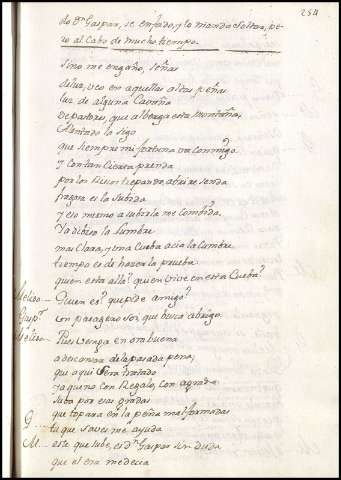 254
do Dn Gaspar, se enfado, y lo mando soltar, pe-
ro al Cabo de mucho tiempo.
Sino me engaño, señas
de luz, veo en aquellas altas peñas
luz de alguna Cavaña
de pastores, que alberga esta montaña,
Alentado la sigo
que siempre mi fortuna va conmigo
y con tan Cierta prenda
por los Riscos trepando, abriré senda
fragosa es la subida
y eso mismo a subirla me combida,
Ya diviso la lumbre
mas Clara, y una Cueba acia la Cumbre
tiempo es de hacer la prueba
quien esta alla? quien vive en esta Cueba?
Meliso - Quien es? que pide amigo?
Gasp.r un pasagero soy, que busca abrigo
Meliso - Pues venga en ora buena
a descansar de la pasada pena,
que aqui sera tratado
ya que no con Regalo, con agrado
suba por esas gradas
que topara en la peña mal formadas
G... tu que saves, me ayuda
M... este que sube, es Dn Gaspar sin duda
que el era